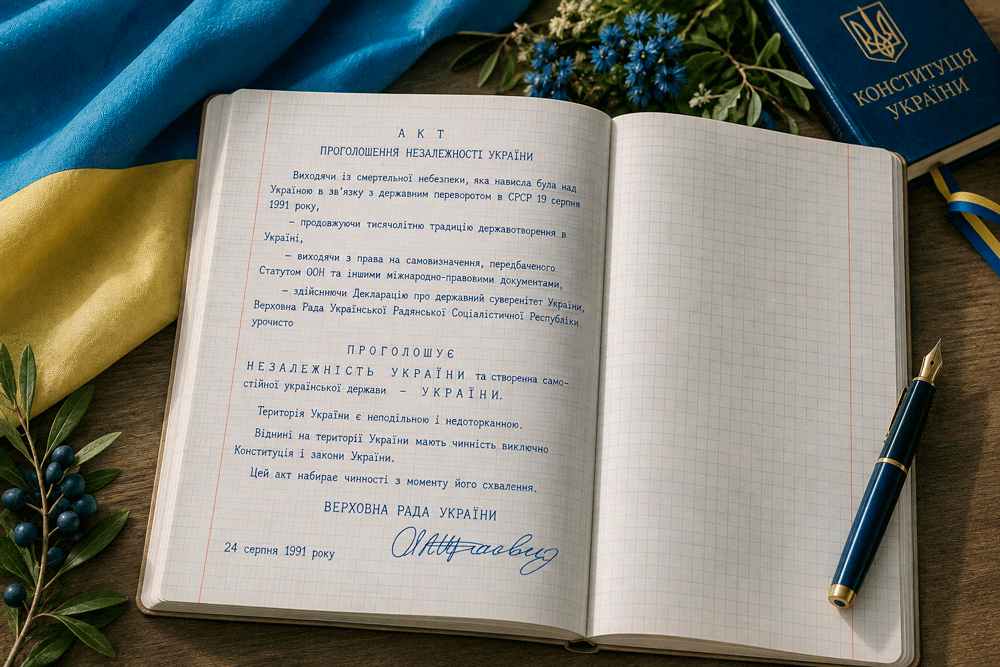 А К Т
ПРОГОЛОШЕННЯ НЕЗАЛЕЖНОСТІ УКРАЇНИ
Виходячи із смертельної небезпеки, яка нависла була над
Україною в зв'язку з державним переворотом в СРСР 19 серпня
1991 року,
– продовжуючи тисячолітню традицію державотворення в
Україні,
– виходячи з права на самовизначення, передбаченого
Статутом ООН та іншими міжнародно-правовими документами,
– здійснюючи Декларацію про державний суверенітет України,
Верховна Рада Української Радянської Соціалістичної Республіки
урочисто
П Р О Г О Л О Ш У Є
Н Е З А Л Е Ж Н І С Т Ь У К Р А Ї Н И та створенна само-
стійної української держави – У К Р А Ї Н И.
Територія України є неподільною і недоторканною.
Віднині на території України мають чинність виключно
Конституція і закони України.
Цей акт набирає чинності з моменту його схвалення.
ВЕРХОВНА РАДА УКРАЇНИ
24 серпня 1991 року
КОНСТИТУЦІЯ
УКРАЇНИ